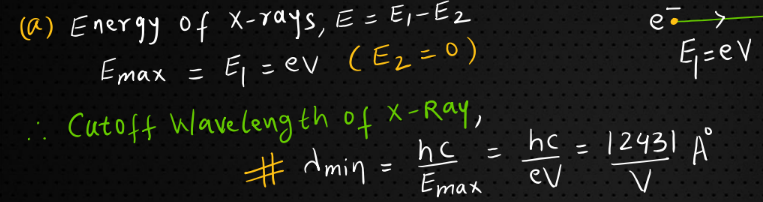 (a) Energy of X-rays, E = E₁-E₂
e⁻
Emax = E₁ = eV (E₂=0)
E₁=eV
∴ Cutoff Wavelength of X-Ray,
# λmin = hc/Emax = hc/eV = 12431/V A°